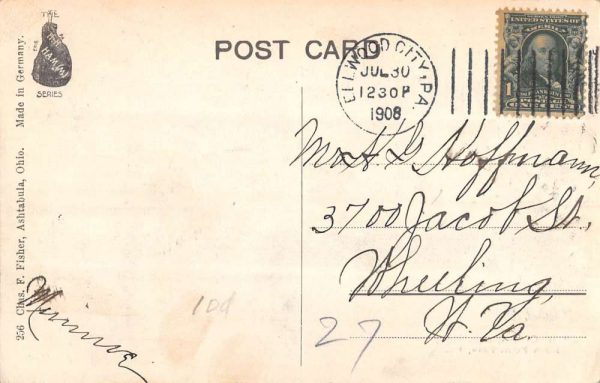 THE
HAMMER
SERIES
POST CARD
ELLWOOD CITY, PA.
JUL 30
1230P
1908
UNITED STATES OF AMERICA
1
256 Chas. F. Fisher, Ashtabula, Ohio. Made in Germany.
H G Hoffmann,
3700 Jacob St.
Wheeling,
W. Va.
10d
27